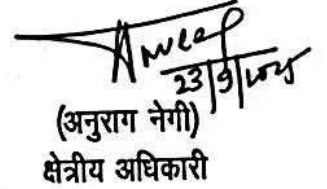 23/9/2025
(अनुराग नेगी)
क्षेत्रीय अधिकारी